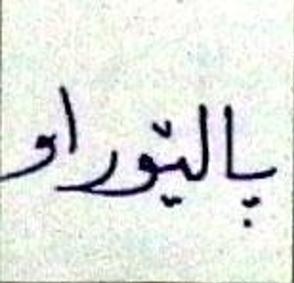 پالێوراو